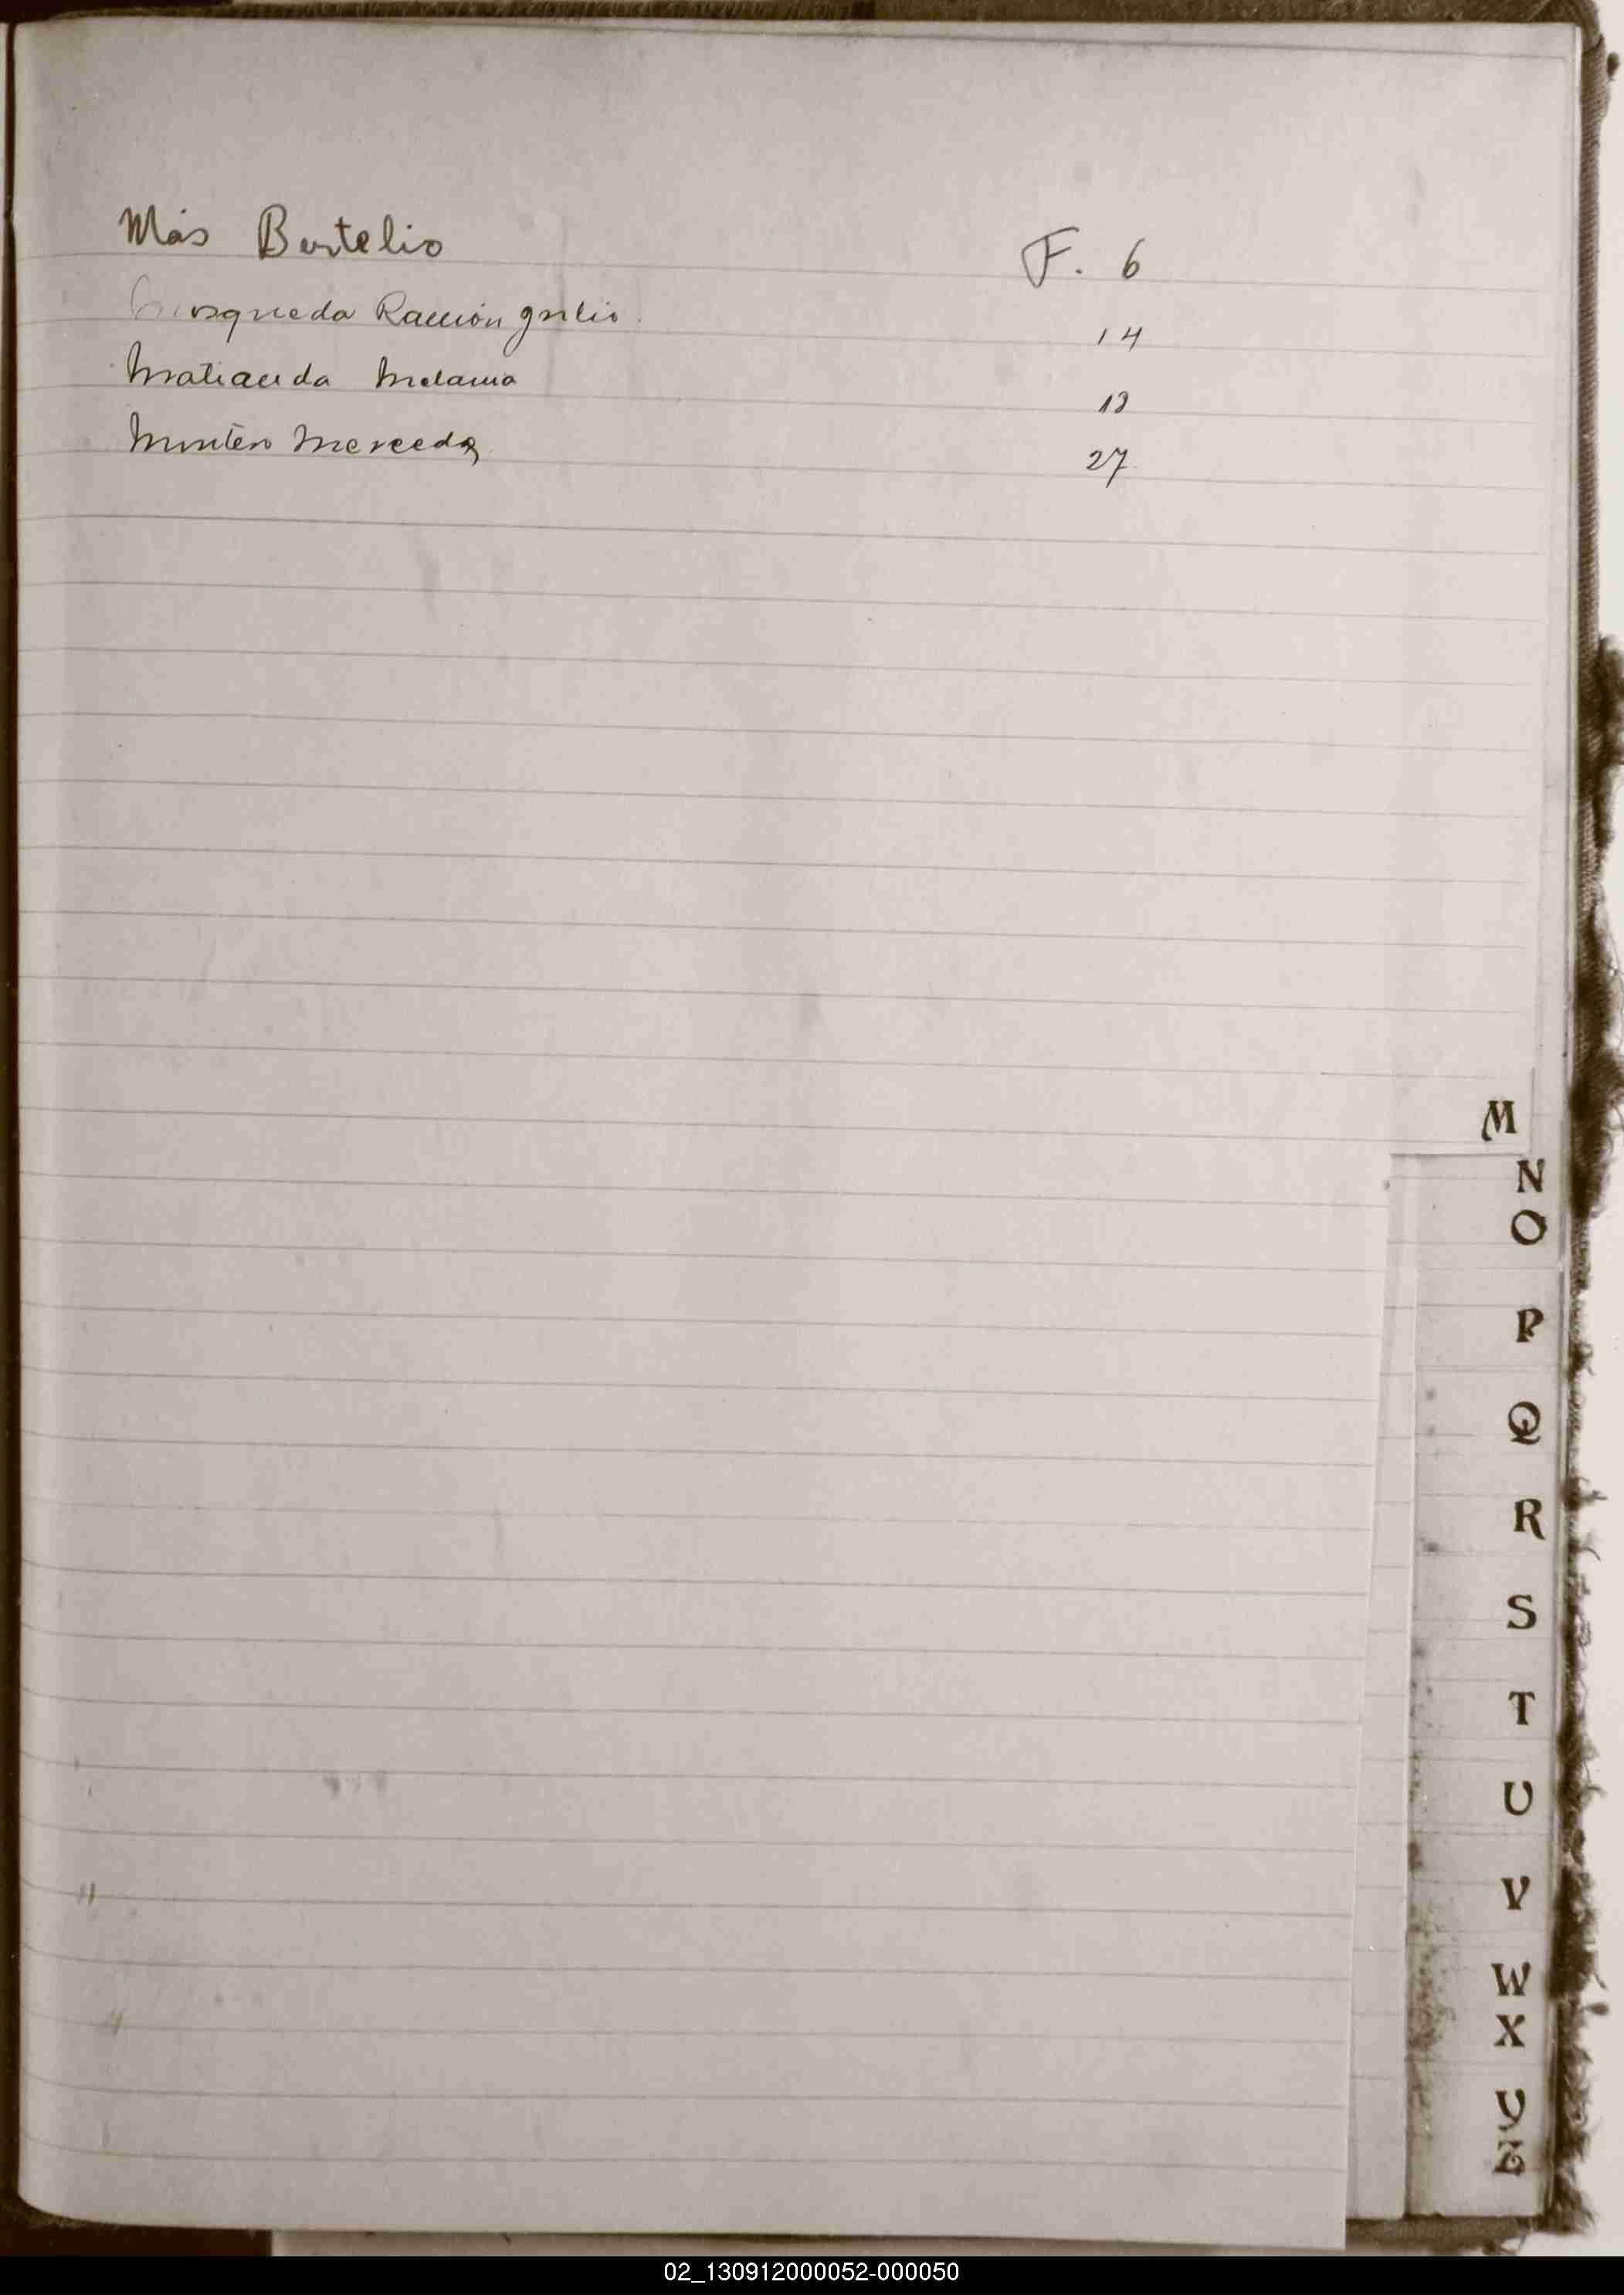 Más Bertelio F. 6
Mosqueda Ramón Julio. 14
Matianda Melania
Montero Mercedes 27
M
N
O
P
Q
R
S
T
U
V
W
X
Y
Z
02_130912000052-000050